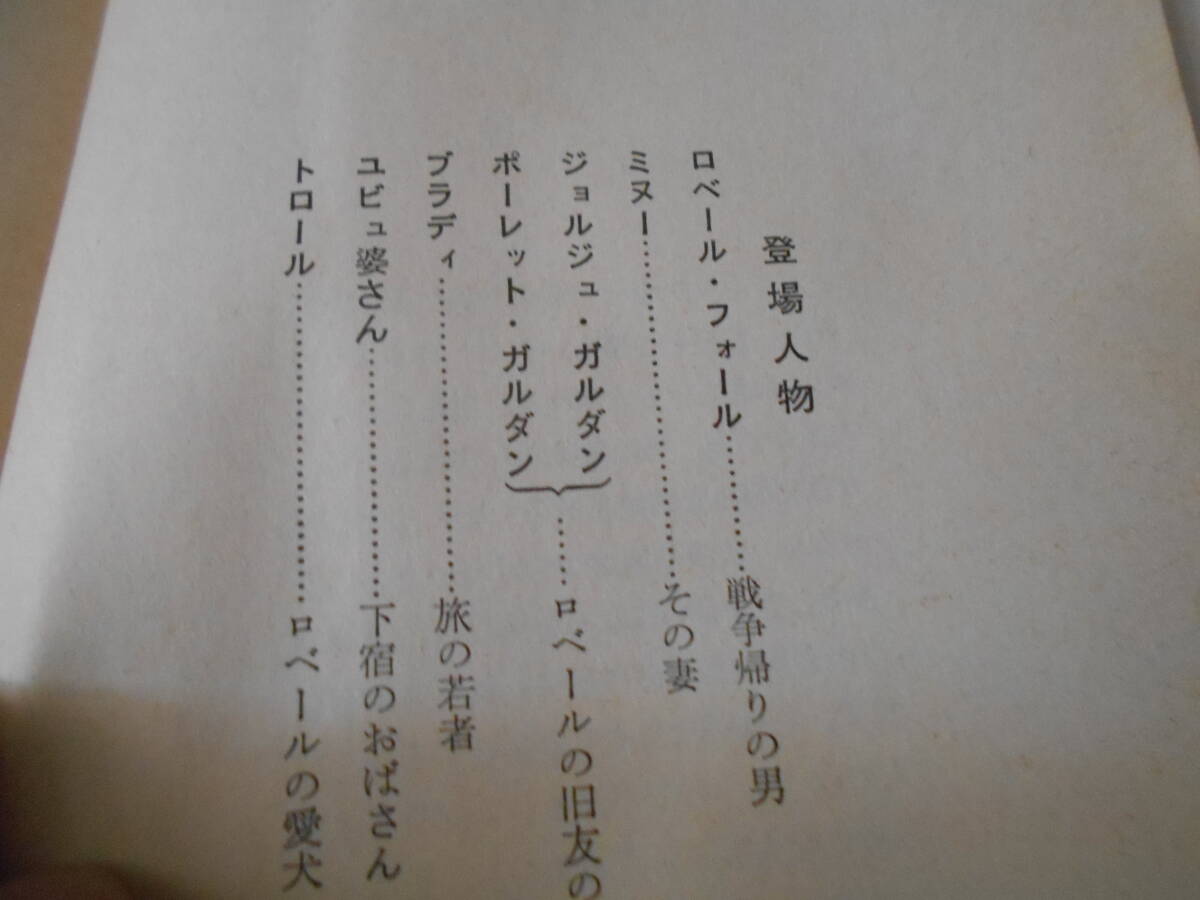 登場人物
ロベール・フォール…………戦争帰りの男
ミヌー……………………………その妻
ジョルジュ・ガルダン
ポーレット・ガルダン}……ロベールの旧友の
ブラディ…………………………旅の若者
ユビュ婆さん……………………下宿のおばさん
トロール…………………………ロベールの愛犬